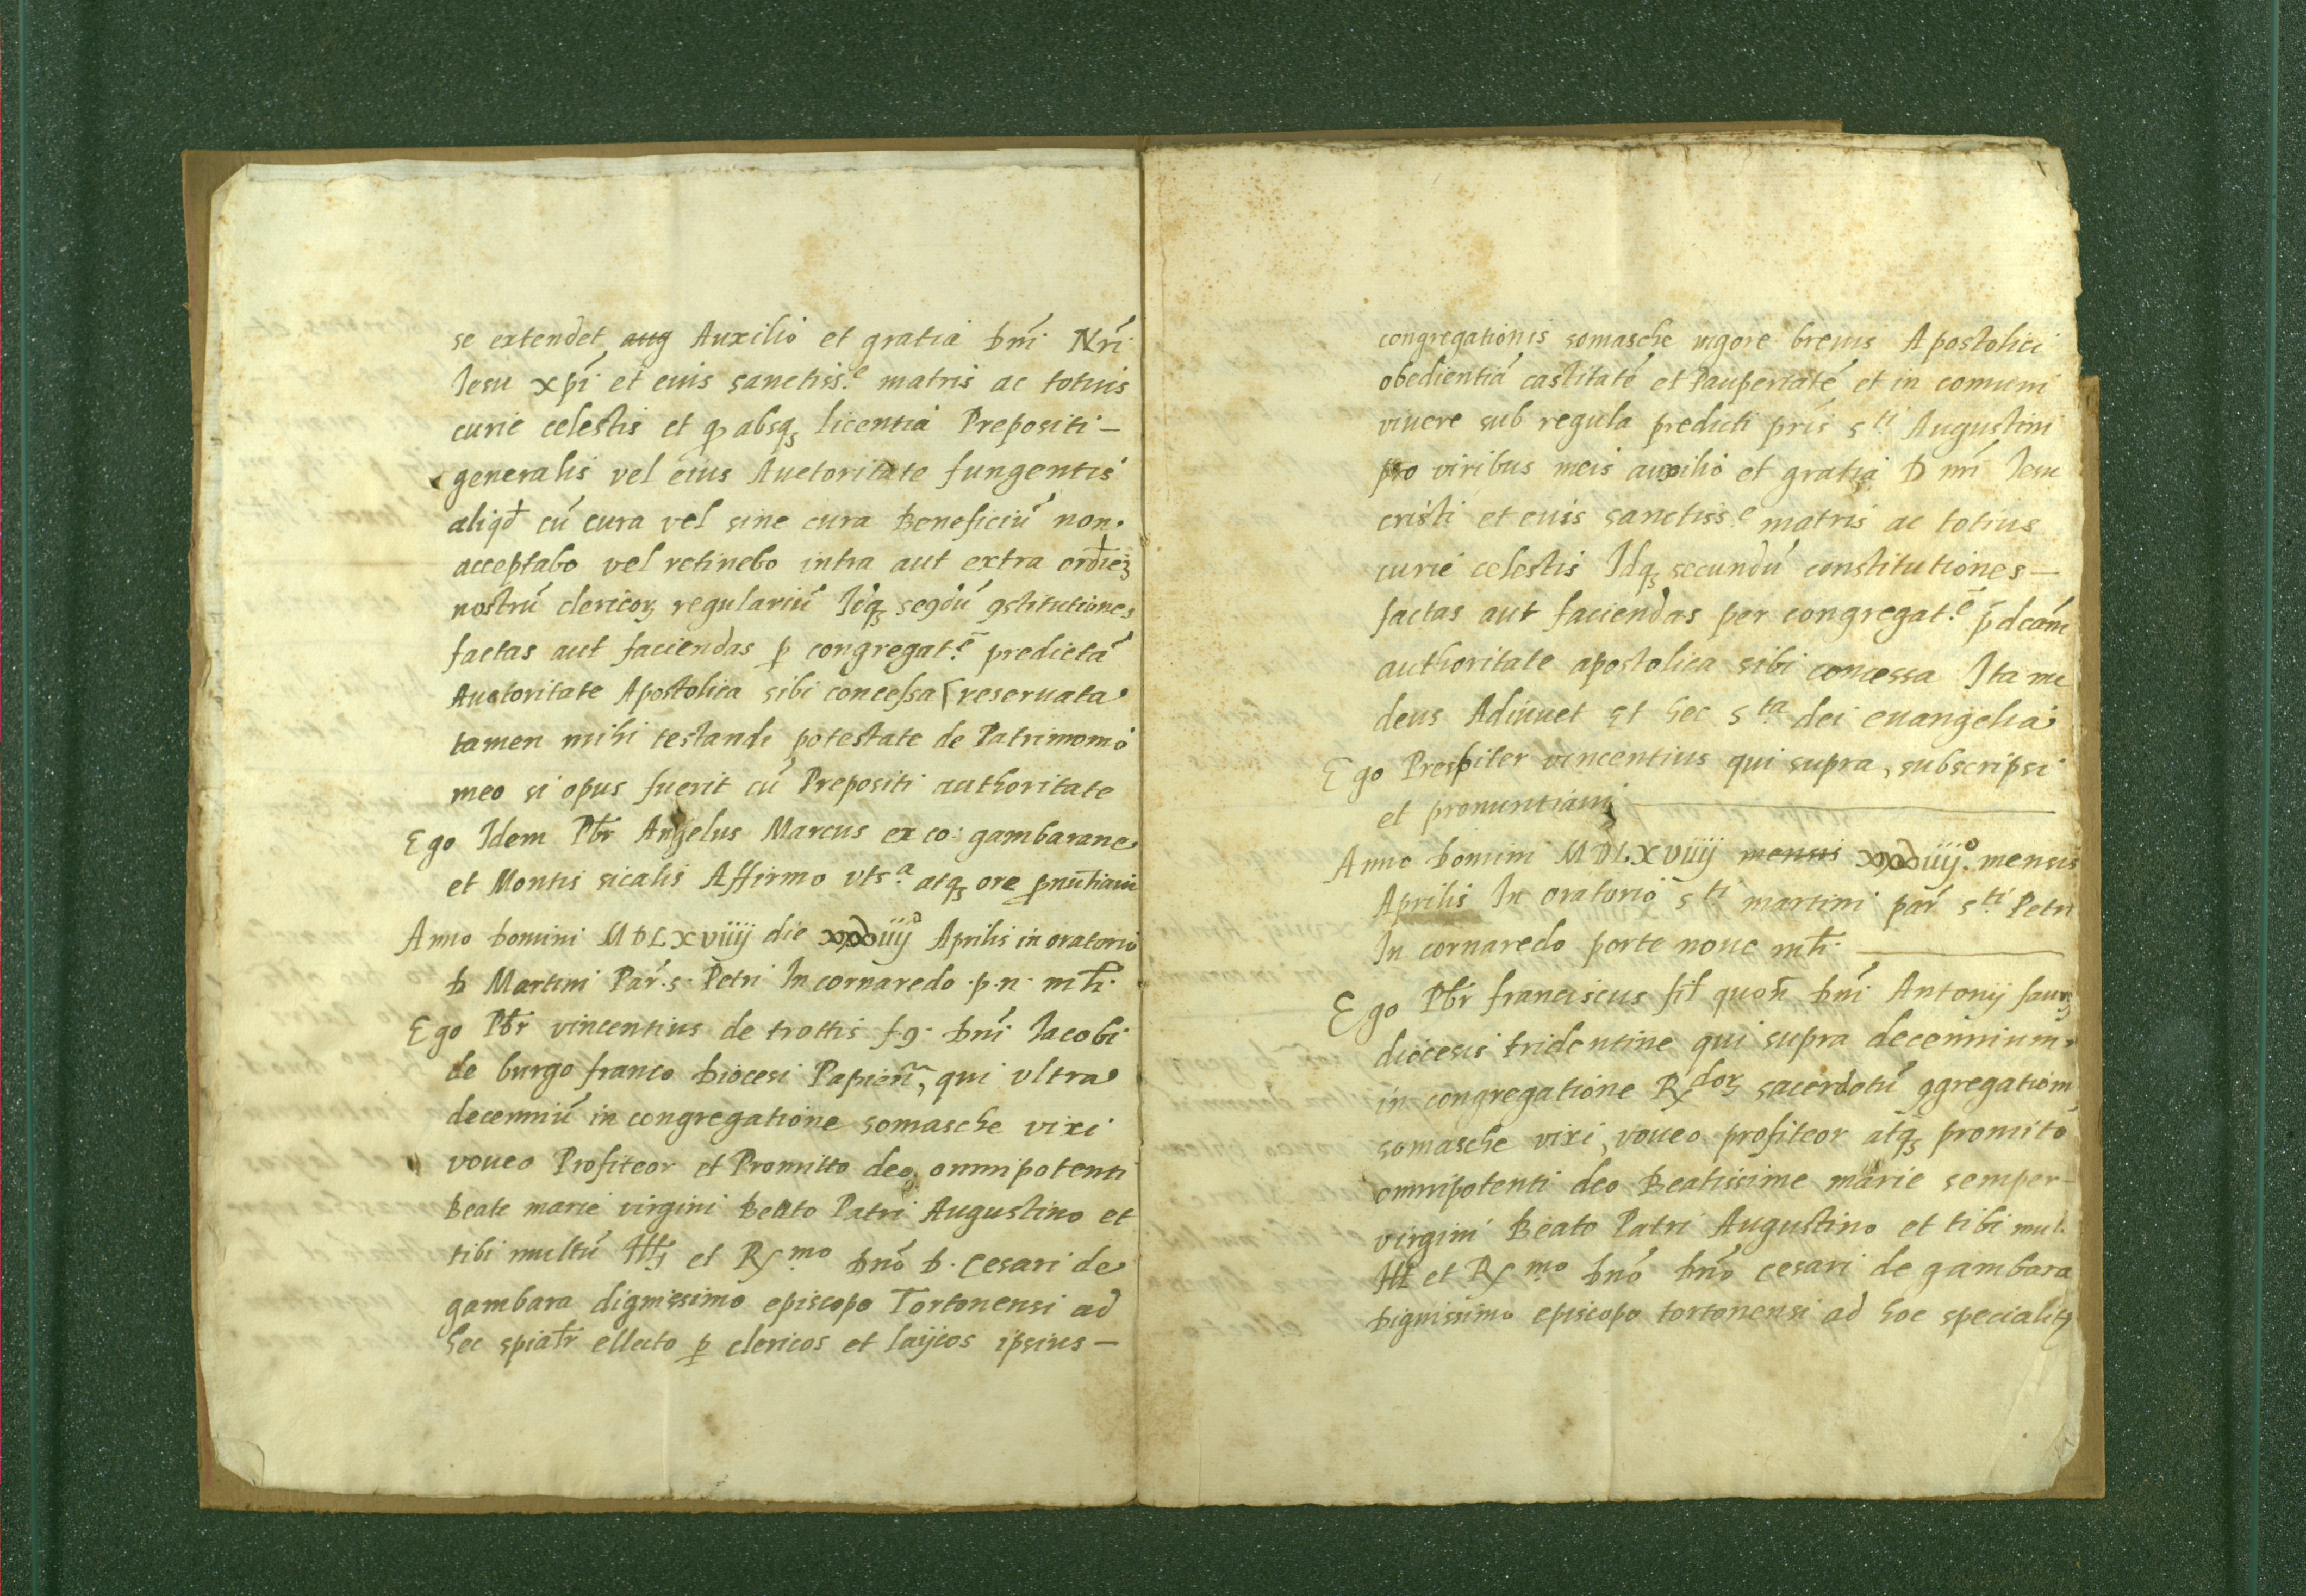 se extendet aug Auxilio et gratia dnĩ Nrĩ
Iesu xpi et euis sanctiss.e matris ac totius
curie celestis et q absq licentia Prepositi -
generalis vel eius Auctoritate fungentis
aliqđ cũ cura vel sine cura Beneficiũ non.
acceptabo vel retinebo intra aut extra ordiez
nostrũ clericoꝝ regulariũ Idq segdũ ꝯstitutiones
factas aut faciendas ꝑ congregat.e predictã
Auctoritate Apostolica sibi concessa reseruata
tamen mihi testandi potestate de Patrimonio
meo si opus fuerit cũ Prepositi authoritate
Ego Idem Pbr̃ Angelus Marcus ex co: gambarane
et Montis sicalis Affirmo vts.a atq ore ꝓnũtiaui
Anno domini MDLXVIIIJ die Aprilis in oratorio
D Martini Par. s. Petri In cornaredo .p.n. mli.
Ego Pbr̃ vincentius de trottis f.q. dnĩ Iacobi
de burgo franco Diocesi Papieñ, qui vltra
decenniũ in congregatione somasche vixi
voueo Profiteor et Promitto deo, omnipotenti
Beate marie virgini Beato Patri Augustino et
tibi multũ Ill et R.mo dnõ D. Cesari de
gambara dignissimo episcopo Tortonensi ad
hec spialr ellecto ꝑ clericos et laijcos ipsius -
congregationis somasche uigore breuis Apostolici
obedientiã castitatẽ et Paupertatẽ et in comuni
viuere sub regula predicti pris s.ti Augustini
pro viribus meis auxilio et gratia D nrĩ Iesu
cristi et euis sanctiss.e matris ac totius
curie celestis Idq secundũ constitutiones -
factas aut faciendas per congregat.e p̄dcam
authoritate apostolica sibi concessa Ita me
deus Adiuuet et hec s.ta dei euangelia
Ego Presbiter vincentius qui supra, subscripsi
et pronuntiaui
Anno domini MDLXVIIIJ mensis mensis
Aprilis In oratorio s.ti martini par s.ti Petri
In cornaredo porte noue mli.
Ego Pbr̃ franciscus fil quon̄ dnĩ Antonij
diocesis tridentine qui supra decennium
in congregatione R.doꝝ sacerdotũ ꝯgregationis
somasche vixi, voueo profiteor atq promito
omnipotenti deo Beatissime marie semper -
virgini Beato Patri Augustino et tibi mul.
Ill et R.mo dnõ dnõ cesari de gambara
Dignissimo episcopo tortonensi ad hoc specialit